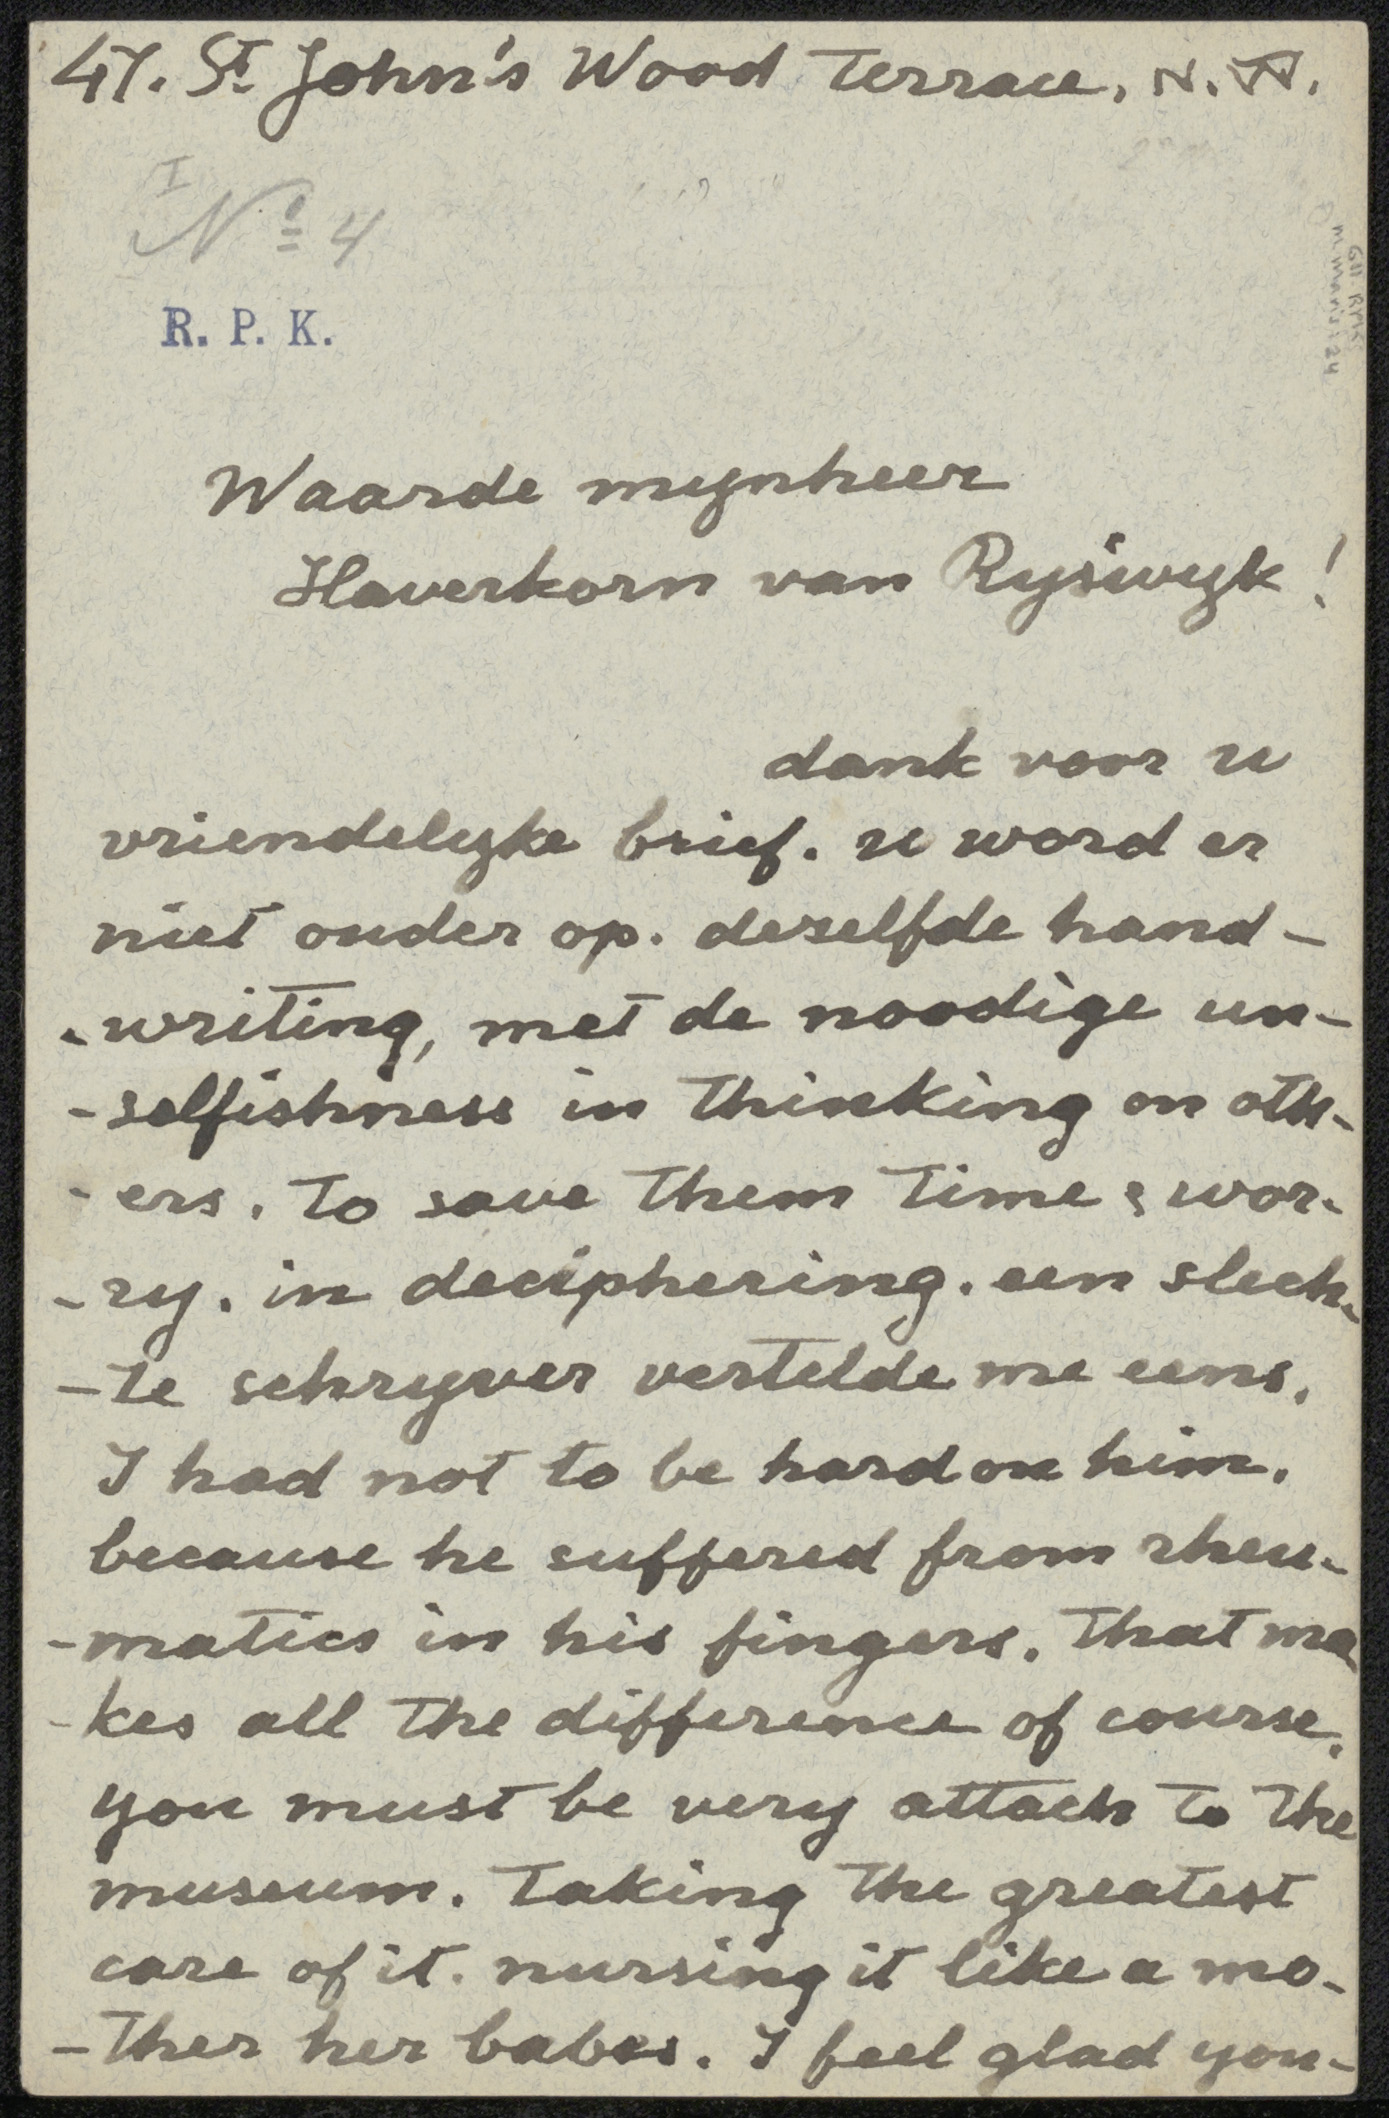 47. St John's Wood Terrace, N.W.
I
No 4
R. P. K.
Waarde mynheer
Haverkorn van Ryswyk!
dank voor u
vriendelyke brief. u word er
niet ouder op. deselfde hand-
-writing, met de noodige un-
-selfishness in thinking on oth-
-ers. to save them time & wor-
-ry. in deciphering. een slech-
-te schryver vertelde me eens.
I had not to be hard on him.
because he suffered from rheu-
-matics in his fingers. that ma
-kes all the difference of course.
you must be very attach to the
museum. taking the greatest
care of it. nursing it like a mo-
-ther her babes. I feel glad you-